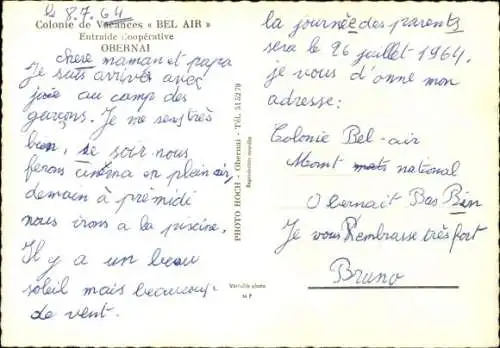 le 8.7.64
Colonie de Vacances « BEL AIR »
Entraide Coopérative
OBERNAI
chere maman et papa
Je suis arrivés avec
joie au camp des
garçons. Je me sens très
bien, se soir nous
ferons cinéma en plein air,
demain à prémidi
nous irons a la piscine,
Il y a un beau
soleil mais beaucoup
de vent.
PHOTO HOCH - Obernai - Tél. 515279
Reproduction interdite
Véritable photo
M P
la journée des parents
sera le 26 juillet 1964,
je vous d'onne mon
adresse:
Colonie Bel-air
Momt national
Obernait Bas Bin
Je vous Rembrasse très fort
Bruno